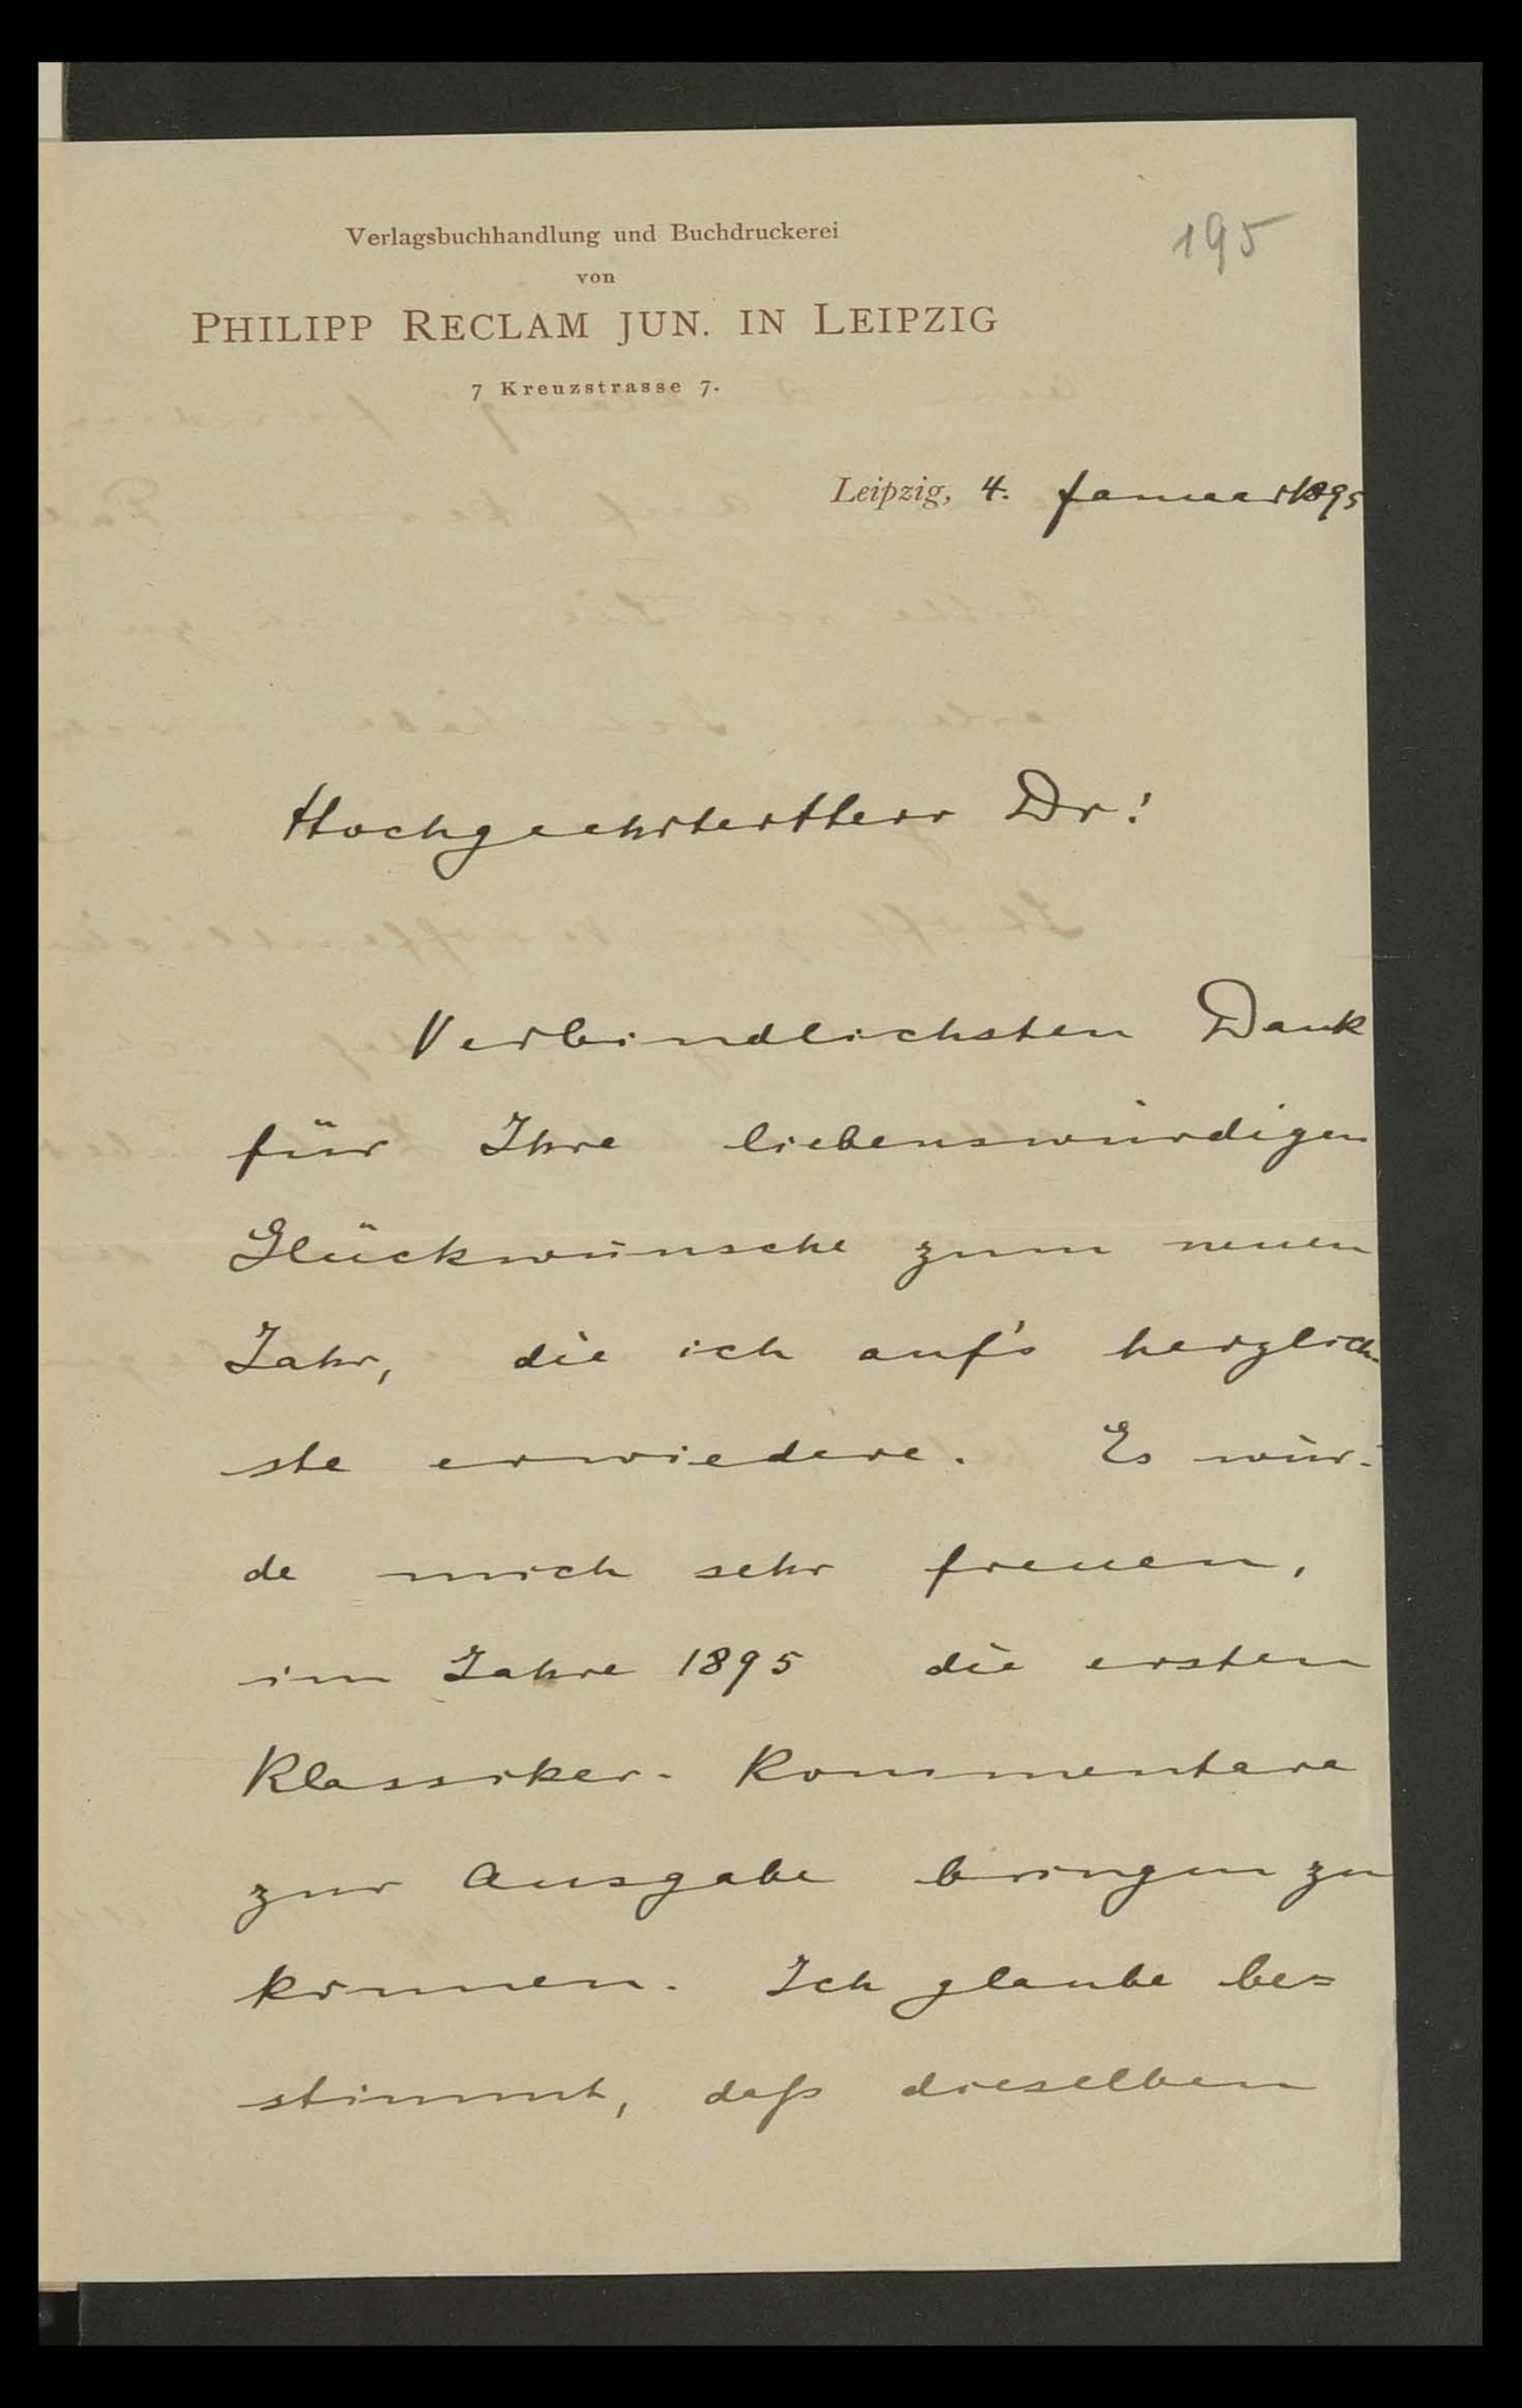 Verlagsbuchhandlung und Buchdruckerei
195
von
PHILIPP RECLAM JUN. IN LEIPZIG
7 Kreuzstrasse 7.
Leipzig, 4. Januar 1895
Hochgeehrter Herr Dr!
Verbindlichsten Dank
für Ihre liebenswürdigen
Glückwünsche zum neuen
Jahr, die ich auf's herzlich-
ste erwiedere. Es wür-
de mich sehr freuen,
im Jahre 1895 die ersten
Klassiker-Kommentare
zur Ausgabe bringen zu
können. Ich glaube be=
stimmt, daß dieselben